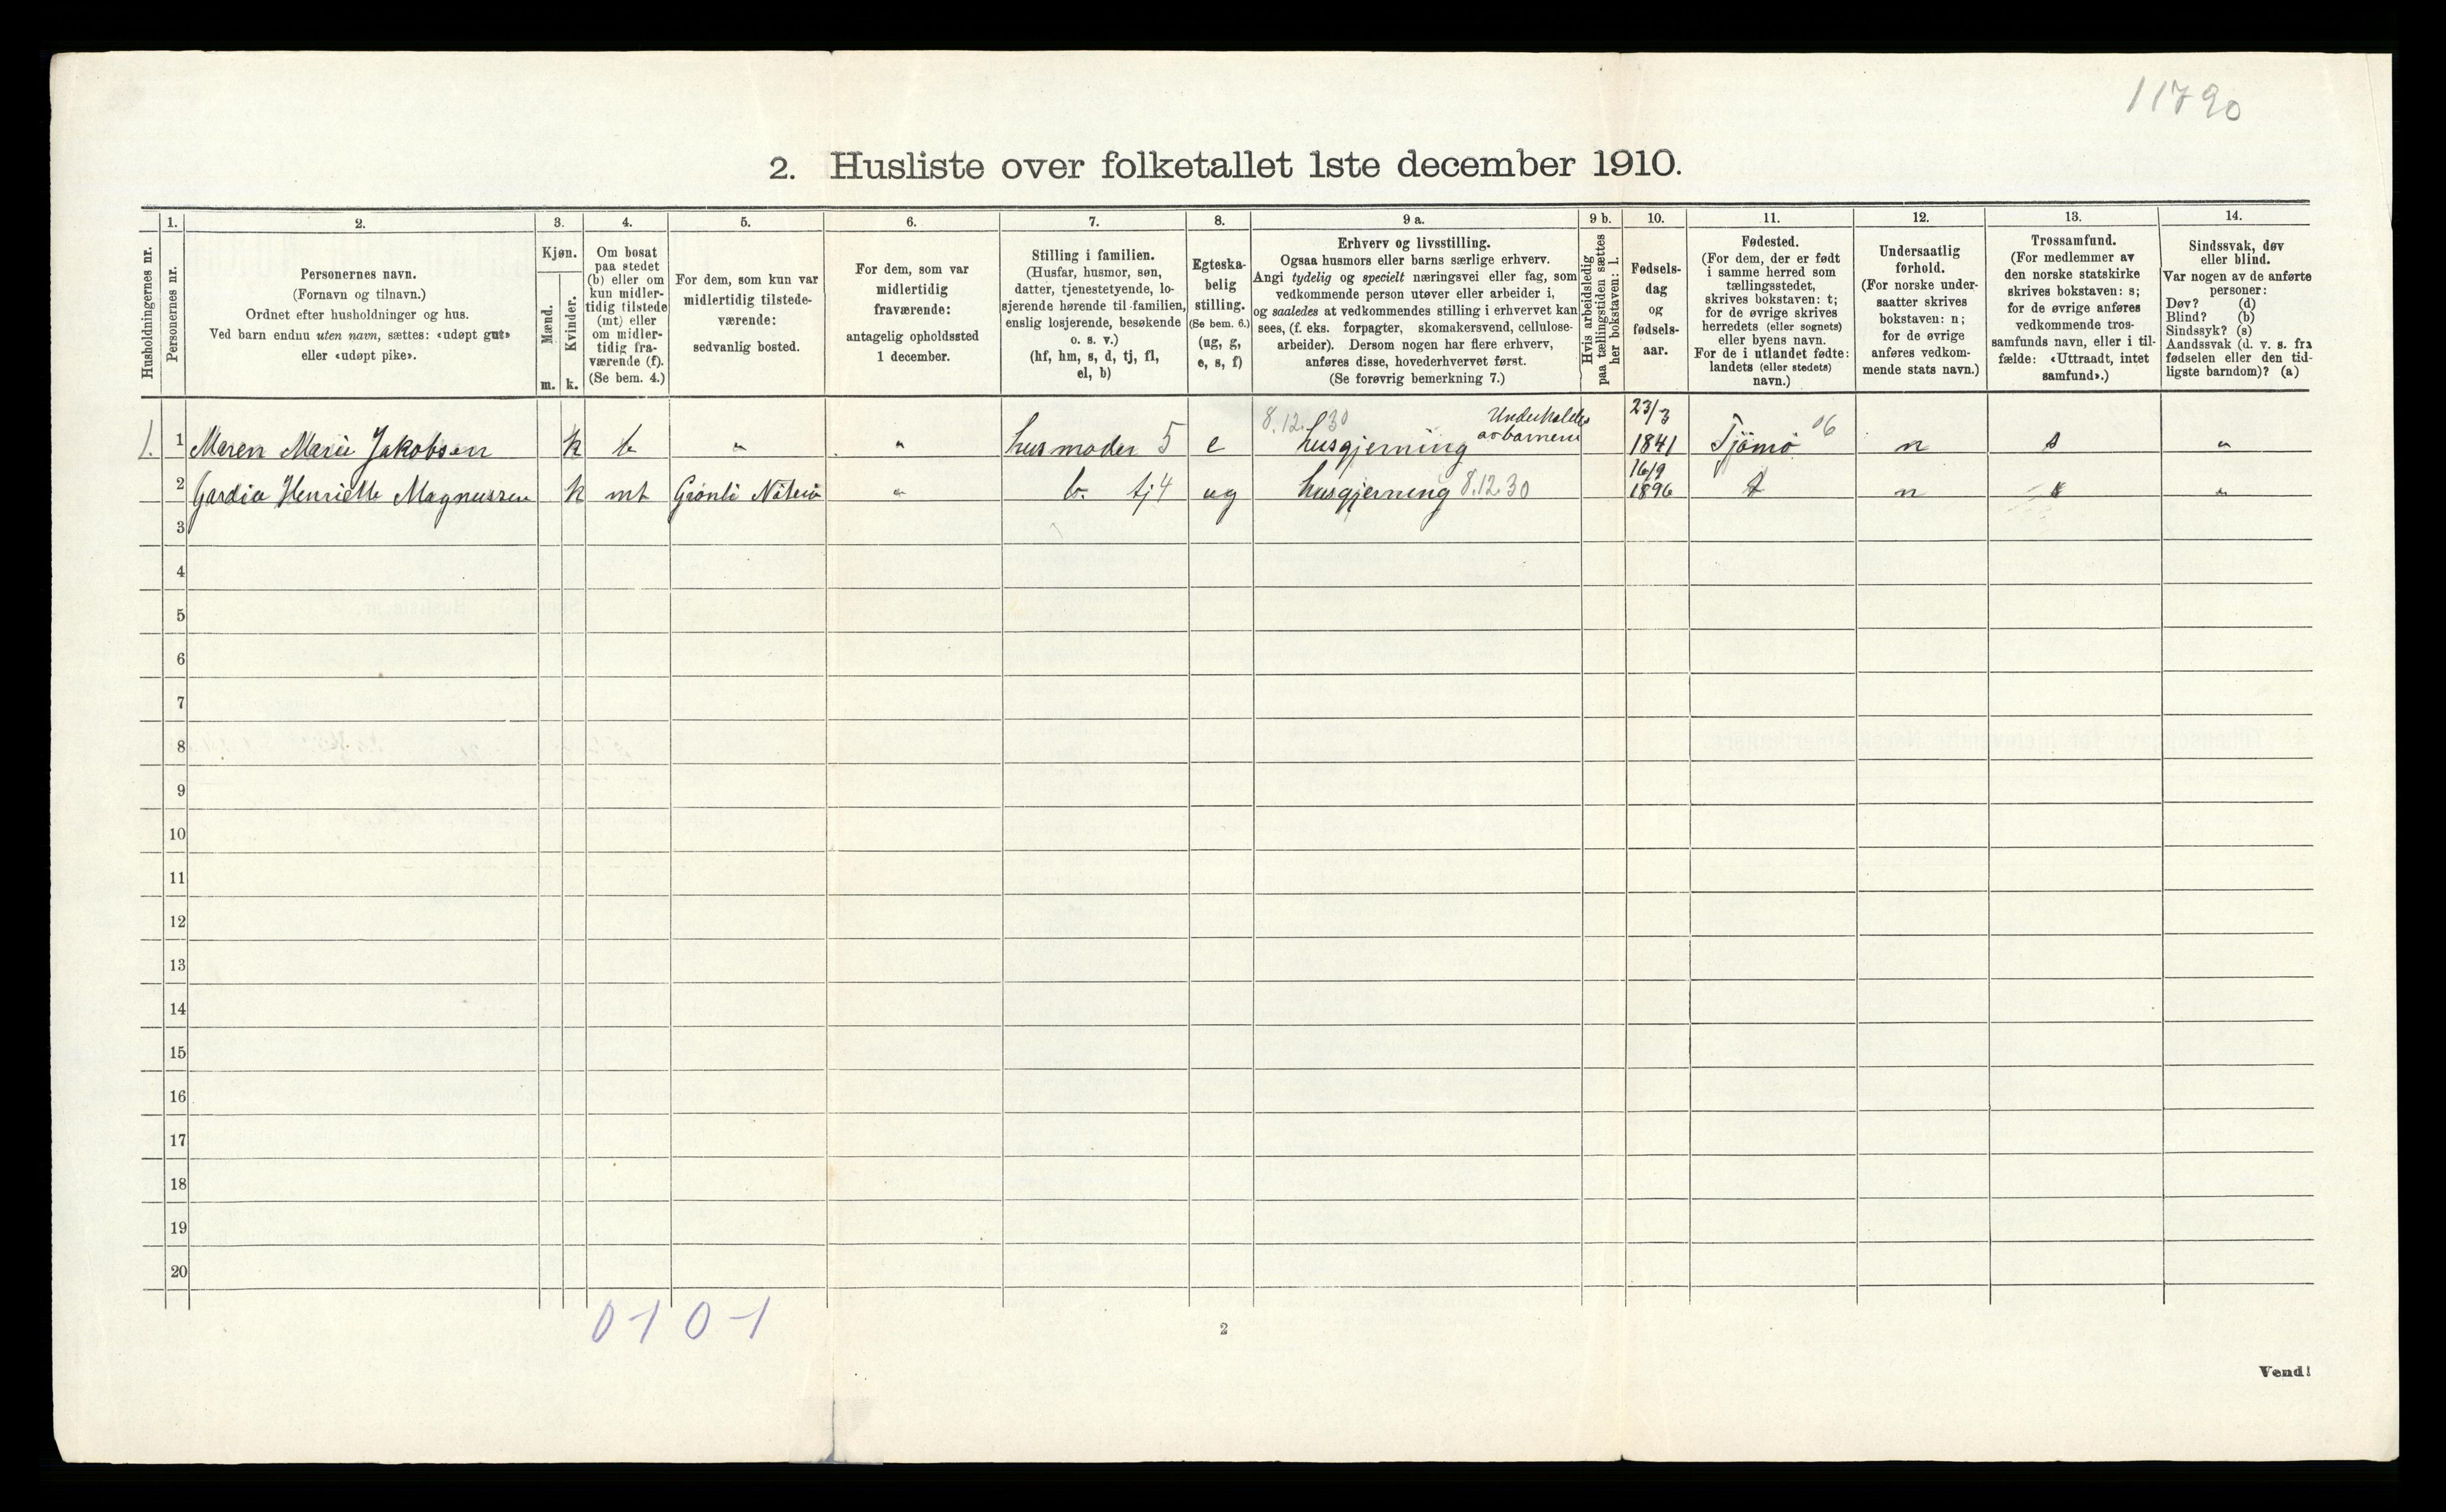 11790
2. Husliste over folketallet 1ste december 1910.
Husholdningernes nr.
1.
Personernes nr.
2.
Personernes navn.
(Fornavn og tilnavn.)
Ordnet efter husholdninger og hus.
Ved barn endnu uten navn, sættes: «udøpt gut»
eller «udøpt pike».
3.
Kjøn.
Mænd.
Kvinder.
m. k.
4.
Om bosat
paa stedet
(b) eller om
kun midler-
tidig tilstede
(mt) eller
om midler-
tidig fra-
værende (f).
(Se bem. 4.)
5.
For dem, som kun var
midlertidig tilstede-
værende:
sedvanlig bosted.
6.
For dem, som var
midlertidig
fraværende:
antagelig opholdssted
1 december.
7.
Stilling i familien.
(Husfar, husmor, søn,
datter, tjenestetyende, lo-
sjerende hørende til familien,
enslig losjerende, besøkende
o. s. v.)
(hf, hm, s, d, tj, fl,
el, b)
8.
Egteska-
belig
stilling.
(Se bem. 6.)
(ug, g,
e, s, f)
9 a.
Erhverv og livsstilling.
Ogsaa husmors eller barns særlige erhverv.
Angi tydelig og specielt næringsvei eller fag, som
vedkommende person utøver eller arbeider i,
og saaledes at vedkommendes stilling i erhvervet kan
sees, (f. eks. forpagter, skomakersvend, cellulose-
arbeider). Dersom nogen har flere erhverv,
anføres disse, hovederhvervet først.
(Se forøvrig bemerkning 7.)
9 b.
Hvis arbeidsledig
paa tællingstiden sættes
her bokstaven: l.
10.
Fødsels-
dag
og
fødsels-
aar.
11.
Fødested.
(For dem, der er født
i samme herred som
tællingsstedet,
skrives bokstaven: t;
for de øvrige skrives
herredets (eller sognets)
eller byens navn.
For de i utlandet fødte:
landets (eller stedets)
navn.)
12.
Undersaatlig
forhold.
(For norske under-
saatter skrives
bokstaven: n;
for de øvrige
anføres vedkom-
mende stats navn.)
13.
Trossamfund.
(For medlemmer av
den norske statskirke
skrives bokstaven: s;
for de øvrige anføres
vedkommende tros-
samfunds navn, eller i til-
fælde: «Uttraadt, intet
samfund».)
14.
Sindssvak, døv
eller blind.
Var nogen av de anførte
personer:
Døv? (d)
Blind? (b)
Sindssyk? (s)
Aandssvak (d. v. s. fra
fødselen eller den tid-
ligste barndom)? (a)
1. 1 Maren Marie Jakobsen k b " " husmoder 5 e 8.12.30 husgjerning Underholdes av barnene 23/3 1841 Tjømø 06 n s "
2 Gardia Henriette Magnussen k mt Grønli Nøterø " b. tj 4 ug husgjerning 8.12.30 16/9 1896 t n s "
3
4
5
6
7
8
9
10
11
12
13
14
15
16
17
18
19
20
0-1 0-1
2
Vend!